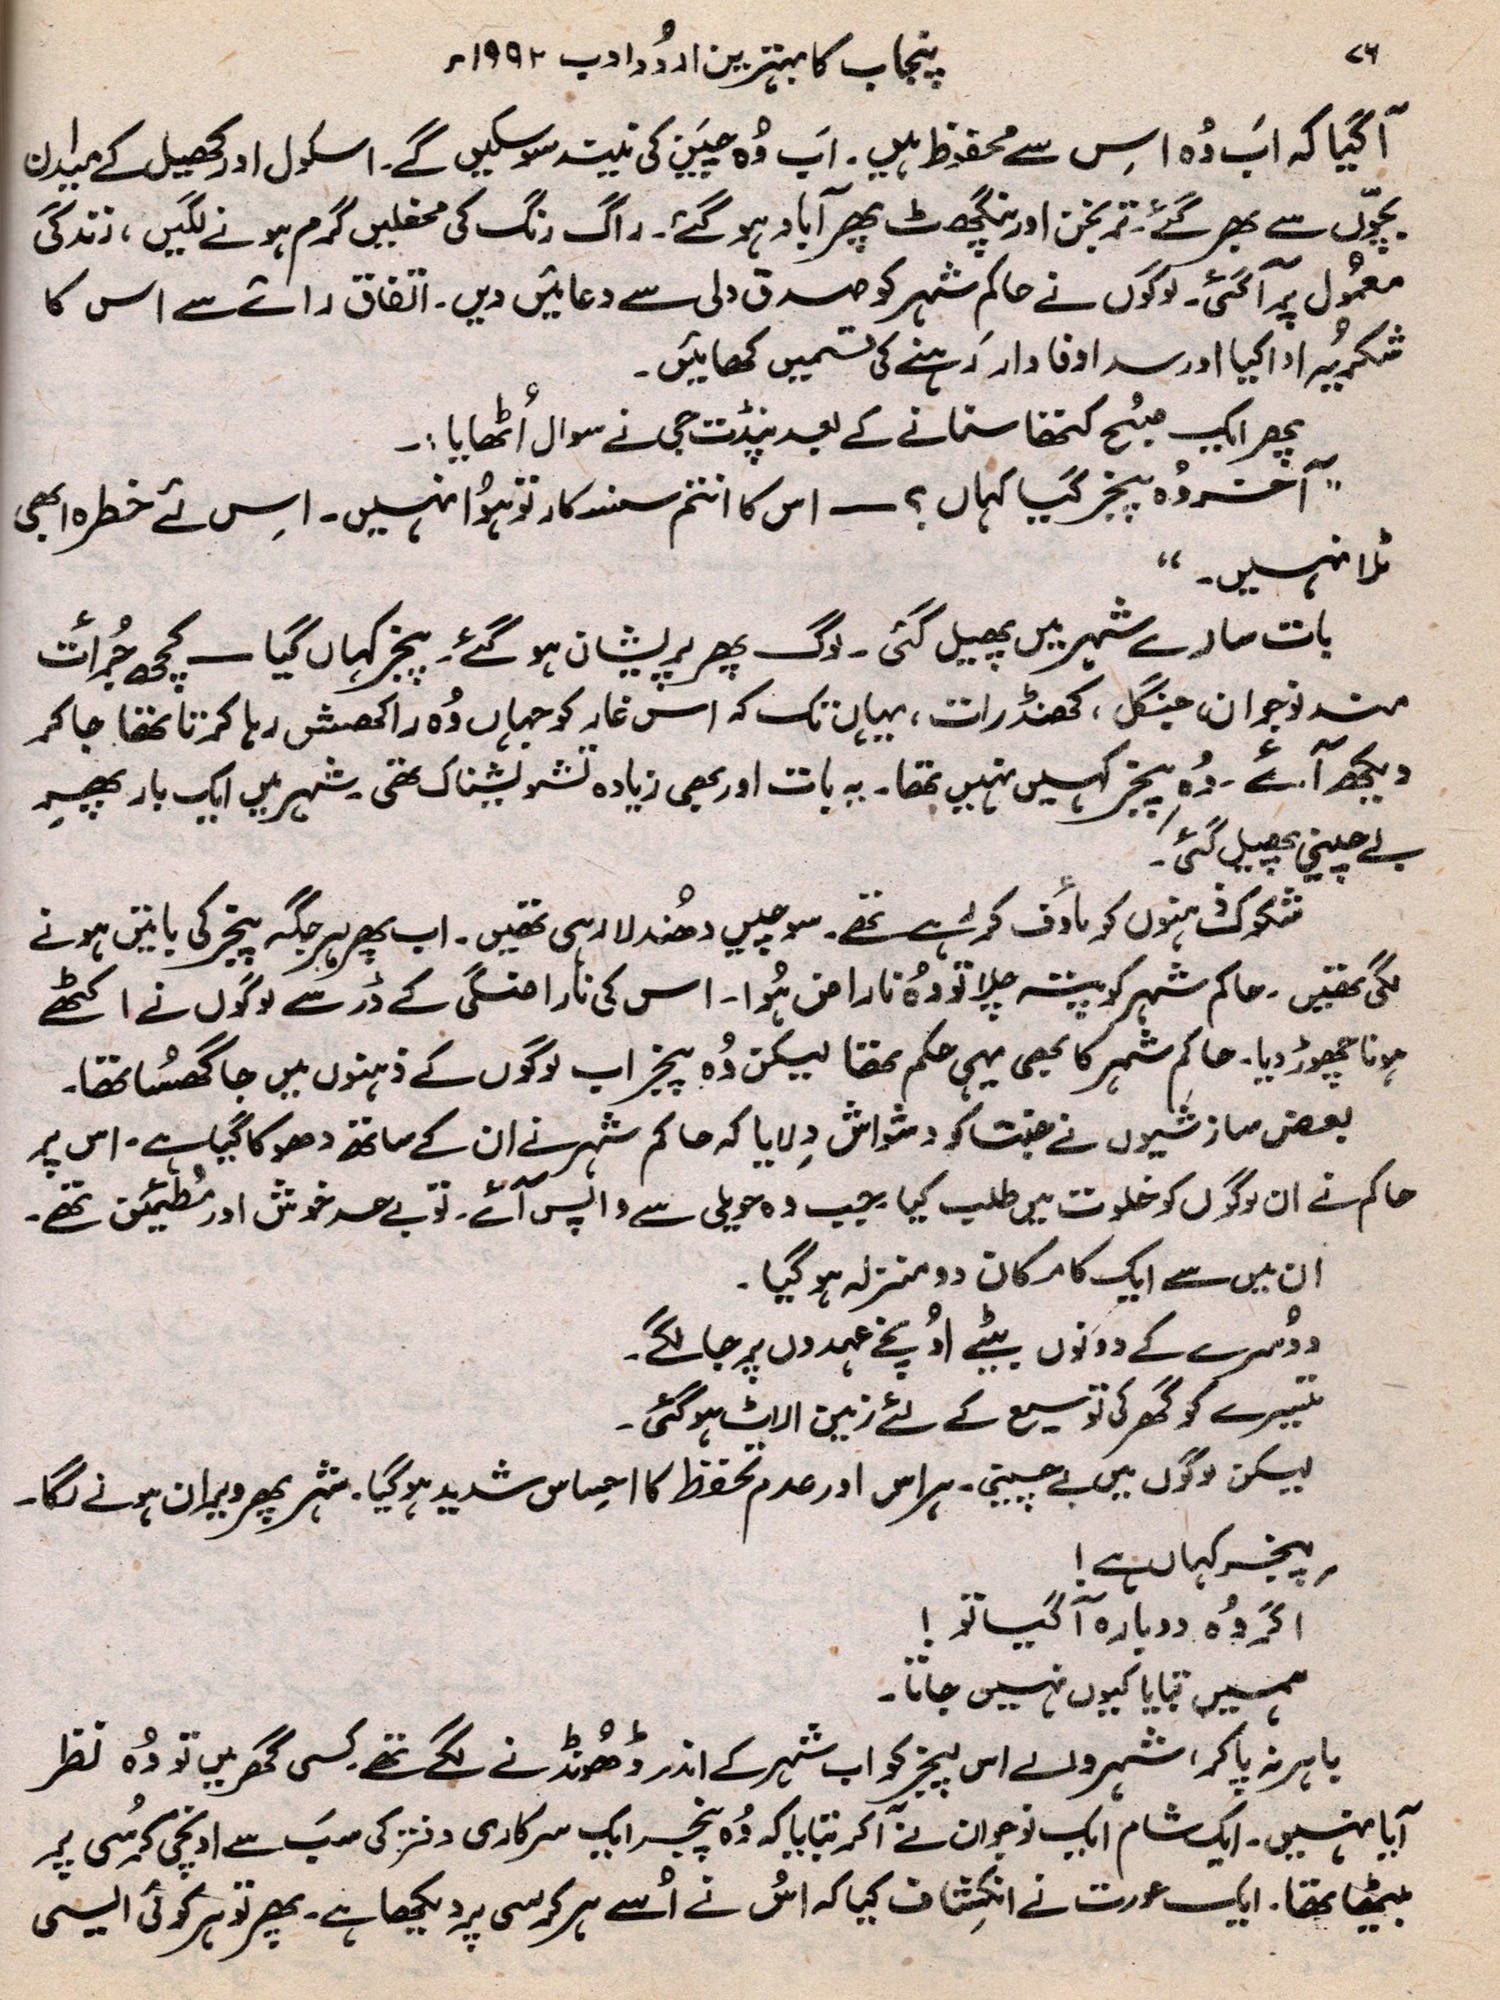 ۷۶
پنجاب کا بہترین اردُو ادب ۱۹۹۲ء
آ گیا کہ اَب وُہ اِس سے محفوظ ہیں۔ اَب وُہ چَین کی نیند سو سکیں گے۔ اسکول اور کھیل کے میدان
بچّوں سے بھر گئے۔ ترنجن اور پنگھٹ پھر آباد ہو گئے۔ راگ رنگ کی محفلیں گرم ہونے لگیں، زندگی
معمُول پر آگئی۔ لوگوں نے حاکم شہر کو صدق دلی سے دعائیں دیں۔ اتفاق رائے سے اس کا
شکریُہ ادا کیا اور سدا وفادار رَہنے کی قسمیں کھائیں۔
پھر ایک صُبح کتھا سنانے کے بعد پنڈت جی نے سوال اُٹھایا:۔
"آخر وُہ پنجر گیا کہاں؟ — اس کا انتم سنسکار تو ہُوا نہیں۔ اِس لئے خطرہ ابھی
ٹلا نہیں۔"
بات سارے شہر میں پھیل گئی۔ لوگ پھر پریشان ہو گئے۔ پنجر کہاں گیا — کچھ جُرأت
مند نوجوان، جنگل، کھنڈرات، یہاں تک کہ اس غار کو جہاں وُہ راکھشش رہا کرتا تھا جا کر
دیکھ آئے۔ وُہ پنجر کہیں نہیں تھا۔ یہ بات اور بھی زیادہ تشویشناک تھی۔ شہر میں ایک بار پھر
بے چینی پھیل گئی۔
شکوک ذہنوں کو ماؤف کر رہے تھے۔ سوچیں دھُندلا رہی تھیں۔ اب پھر ہر جگہ پنجر کی باتیں ہونے
لگی تھیں۔ حاکم شہر کو پتہ چلا تو وُہ ناراض ہُوا۔ اس کی ناراضگی کے ڈر سے لوگوں نے اکٹھے
ہونا چھوڑ دیا۔ حاکم شہر کا بھی یہی حکم تھا لیکن وُہ پنجر اب لوگوں کے ذہنوں میں جا گھُسا تھا۔
بعض سازشیوں نے جنتا کو وشواش دِلایا کہ حاکم شہر نے ان کے ساتھ دھوکا کیا ہے۔ اس پر
حاکم نے ان لوگوں کو خلوت میں طلب کیا۔ جب وہ حویلی سے واپس آئے۔ تو بے حد خوش اور مُطمئن تھے۔
ان میں سے ایک کا مکان دو منزلہ ہو گیا۔
دوُسرے کے دونوں بیٹے اوُنچے عہدوں پر جا لگے۔
تیسرے کو گھر کی توسیع کے لئے زمین الاٹ ہو گئی۔
لیکن لوگوں میں بے چینی۔ ہراس اور عدم تحفظ کا احِساس شدید ہو گیا۔ شہر پھر ویران ہونے لگا۔
پنجر کہاں ہے!
اگر وُہ دوبارہ آ گیا تو!
ہمیں بتایا کیوں نہیں جاتا۔
باہر نہ پا کر، شہر والے اس پنجر کو اب شہر کے اندر ڈھونڈنے لگے تھے۔ کسی گھر میں تو وُہ نظر
آیا نہیں۔ ایک شام ایک نوجوان نے آ کر بتایا کہ وُہ پنجر ایک سرکاری دفتر کی سَب سے اونچی کرُسی پر
بیٹھا تھا۔ ایک عورت نے انکشِاف کیا کہ اسُ نے اُسے ہر کرسی پر دیکھا ہے۔ پھر تو ہر کوئی ایسی